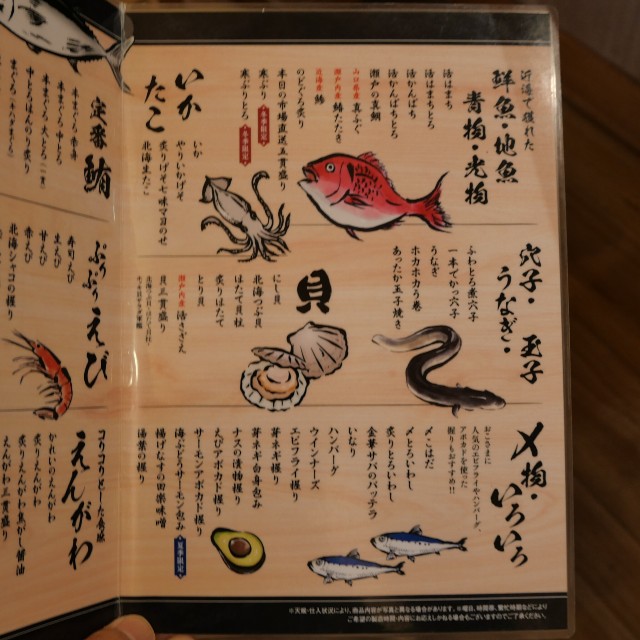 近海で獲れた
鮮魚・地魚
青物・光物
活はまち
活はまちとろ
活かんぱち
活かんぱちとろ
瀬戸の真鯛
山口県産 真ふぐ
瀬戸内産 鯵たたき
近海物 鯵
のどぐろ炙り
本日の市場直送三貫盛り
寒ぶり 冬季限定
寒ぶりとろ 冬季限定
いか
たこ
いか
やりいかげそ
炙りげそ七味マヨのせ
北海生たこ
穴子・
うなぎ・
玉子
ふわとろ煮穴子
一本でかっ穴子
うなぎ
ホカホカう巻
あったか玉子焼き
貝
にし貝
北海つぶ貝
ほたて貝柱
炙りほたて
とり貝
瀬戸内産 活さざえ
貝三貫盛り
〆物・
いろいろ
おこさまに
人気のえびフライやハンバーグ、
アボカドを使った
握りもおすすめ!!
〆こはだ
〆とろいわし
炙りとろいわし
金華サバのバッテラ
いなり
ハンバーグ
ウインナーズ
エビフライ握り
芽ネギ握り
芽ネギ白身包み
ナスの漬物握り
えびアボカド握り
サーモンアボカド握り
海ぶどうサーモン包み 夏季限定
揚げなすの田楽味噌
湯葉の握り
定番 鮪
本まぐろ 赤身
本まぐろ 中とろ
本まぐろ 大とろ
中とろはらんぼ炙り
ぷりぷり えび
寿司えび
生えび
甘えび
赤えび
北海シャコの握り
コリコリとした食感
えんがわ
かれいのえんがわ
炙りえんがわ
炙りえんがわ生のり醤油
えんがわ三貫盛り
※天候・仕入状況により、商品内容が写真と異なる場合があります。※曜日、時間帯、繁忙時期などにより
ご希望の製造時間・内容にお応えしかねる場合もございますのでご了承ください。